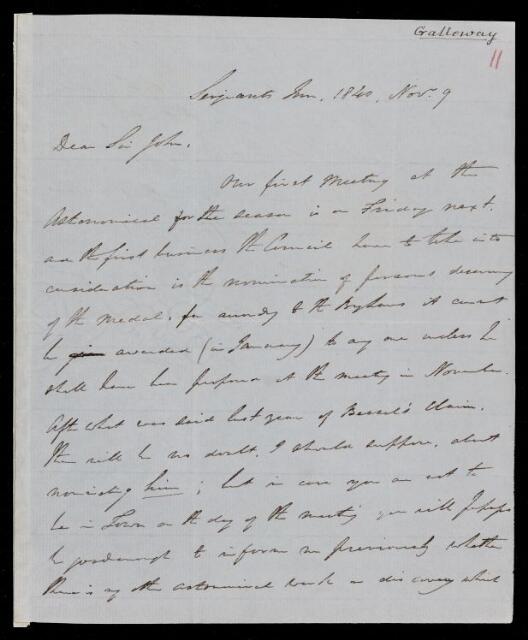 Galloway
11
Sergeants Inn, 1840, Nov. 9
Dear Sir John,
Our first Meeting at the
Astronomical for the season is on Friday next.
and the first business the Council have to take into
consideration is the nomination of persons deserving
of the Medal, for according to the Byelaws it cannot
be awarded (in January) to any one unless he
shall have been proposed at the meeting in November.
After what was said last year of Bessel's claim,
there will be no doubt, I should suppose, about
nominating him; but in case you are not to
be in Town on the day of the meeting you will perhaps
be good enough to inform me previously whether
there is any other astronomical work or discovery which